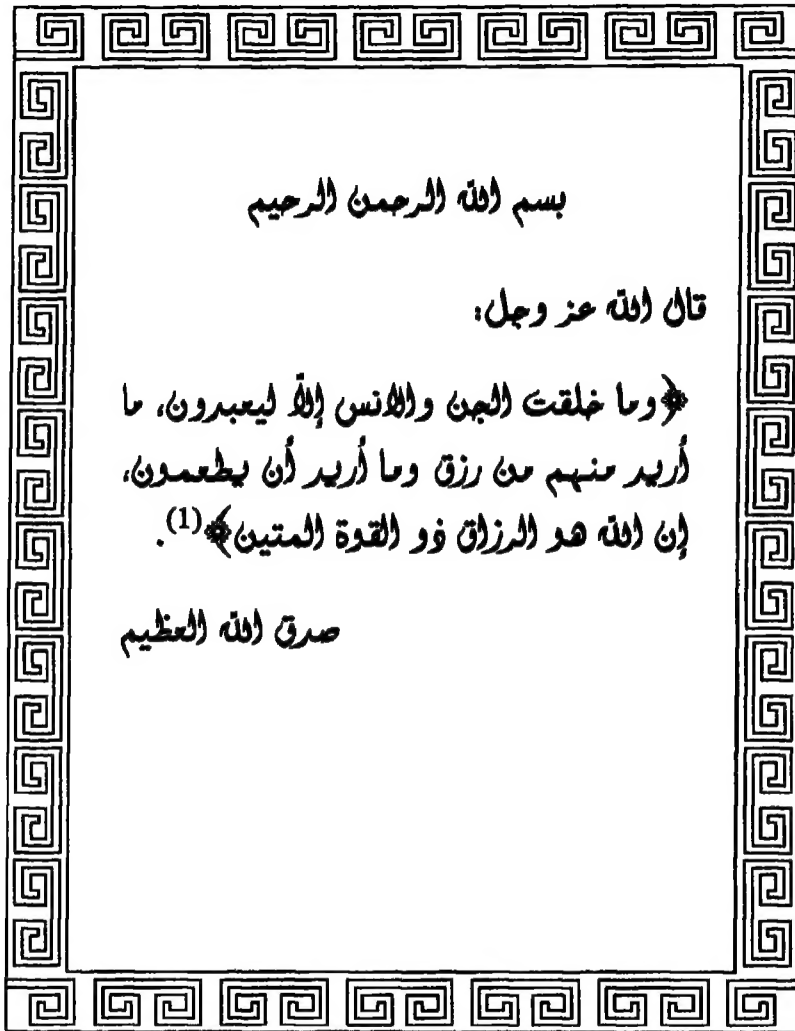 بسم الله الرحمن الرحيم
قال الله عز وجل:
﴿وما خلقت الجن والانس إلاّ ليعبدون، ما
أريد منهم من رزق وما أريد أن يطعمون،
إن الله هو الرزاق ذو القوة المتين﴾(1).
صدق الله العظيم